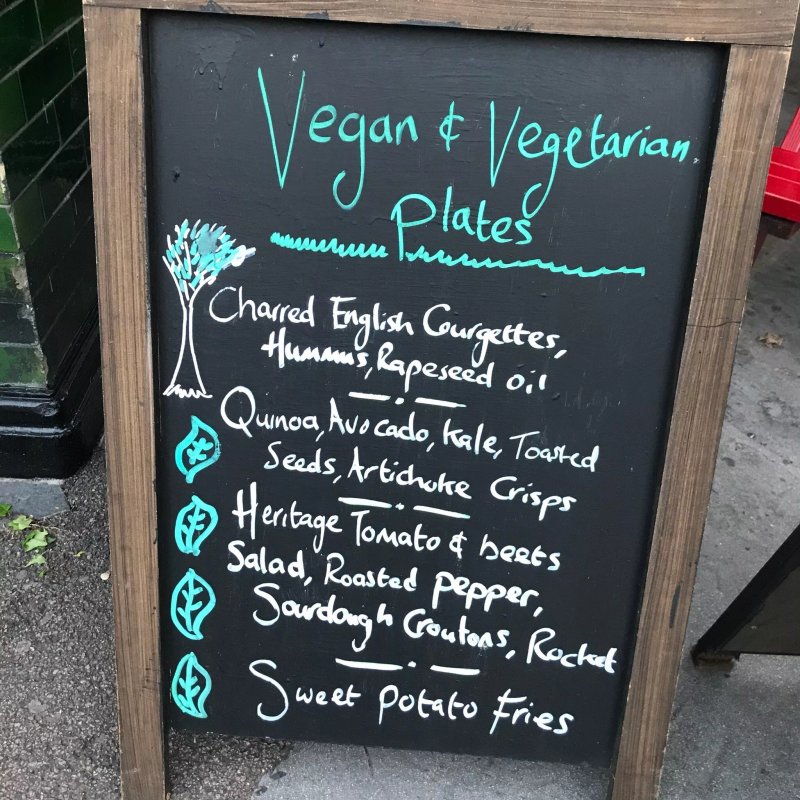 Vegan & Vegetarian
Plates
Charred English Courgettes,
Hummus, Rapeseed oil
Quinoa, Avocado, Kale, Toasted
Seeds, Artichoke Crisps
Heritage Tomato & beets
Salad, Roasted pepper,
Sourdough Croutons, Rocket
Sweet Potato Fries